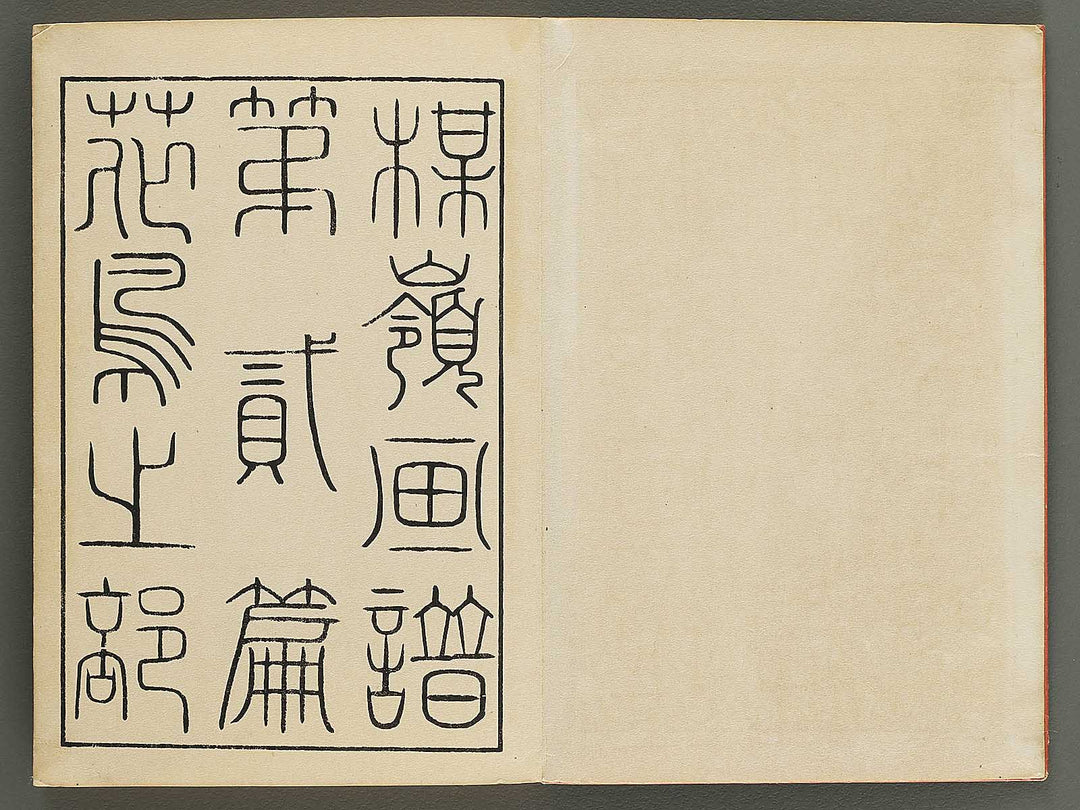 楳嶺画譜
第貳篇
花鳥之部